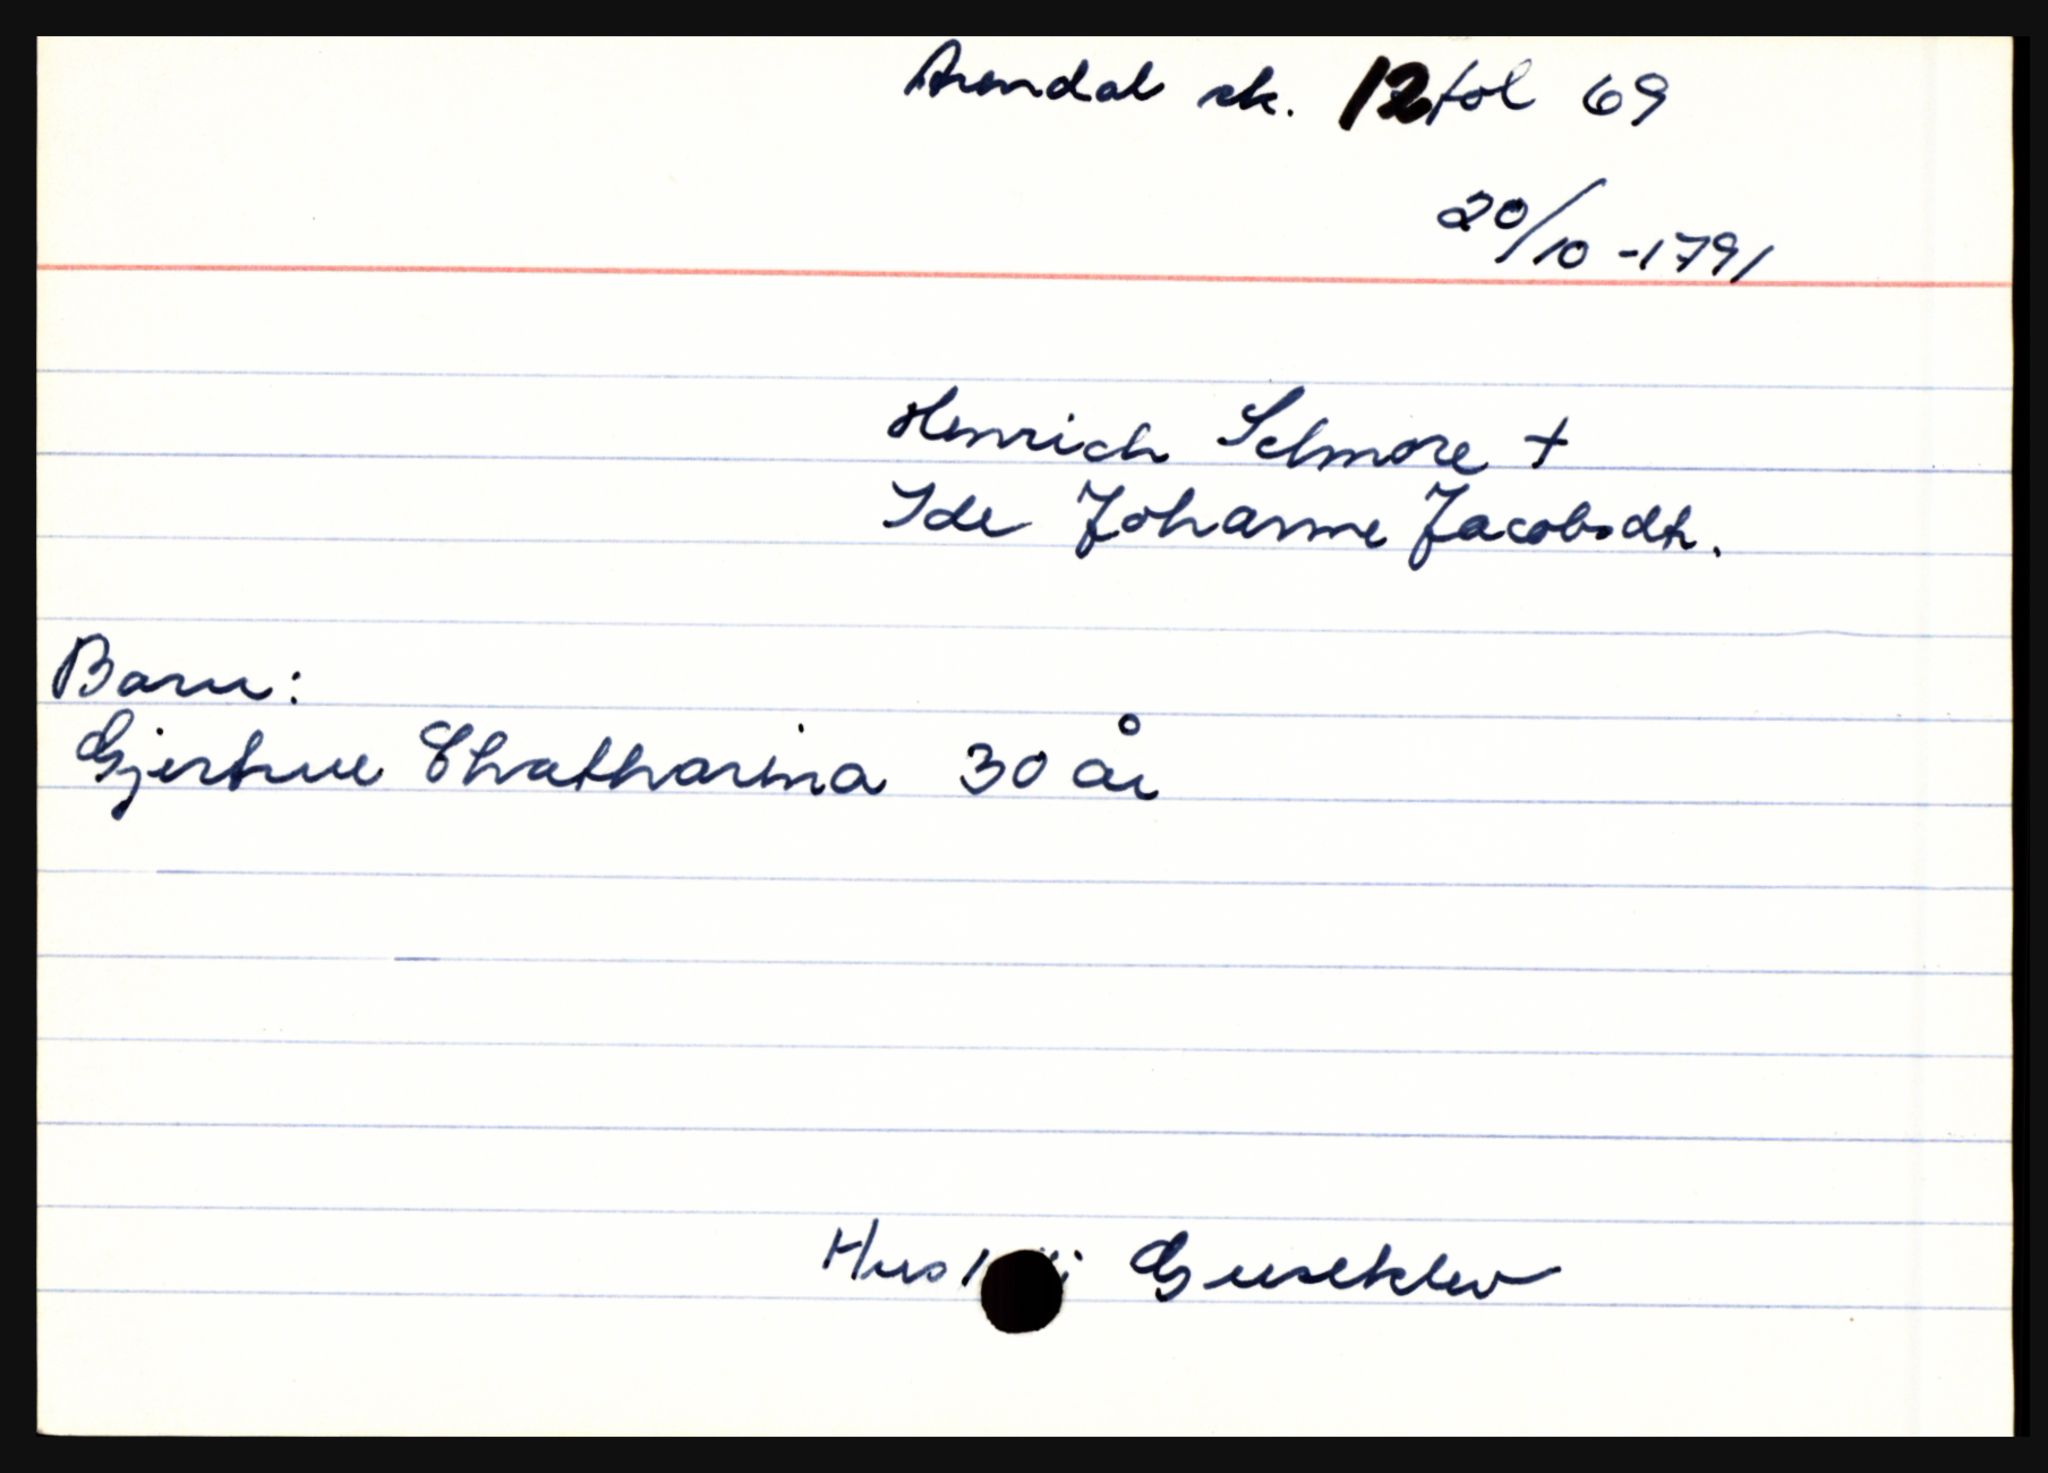 Arendal sk. 12 fol 69
20/10 -1791
Henrich Selmore +
Ide Johanne Jacobsdt.
Barn:
Gjertrue Chatharina 30 år
Hus i